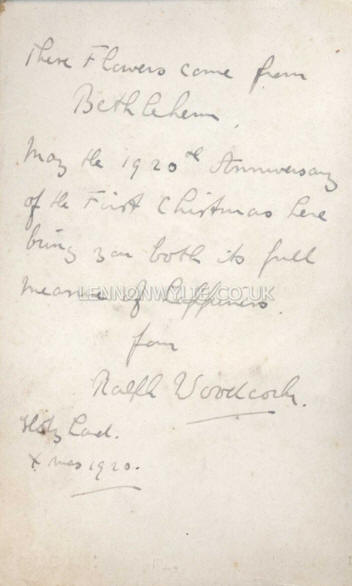 These Flowers come from
Bethlehem.
May the 1920th Anniversary
of the First Christmas here
bring you both its full
measure of happiness.
LENNONWYLIE.CO.UK
from
Ralph Woodcock.
Holy Land.
Xmas 1920.